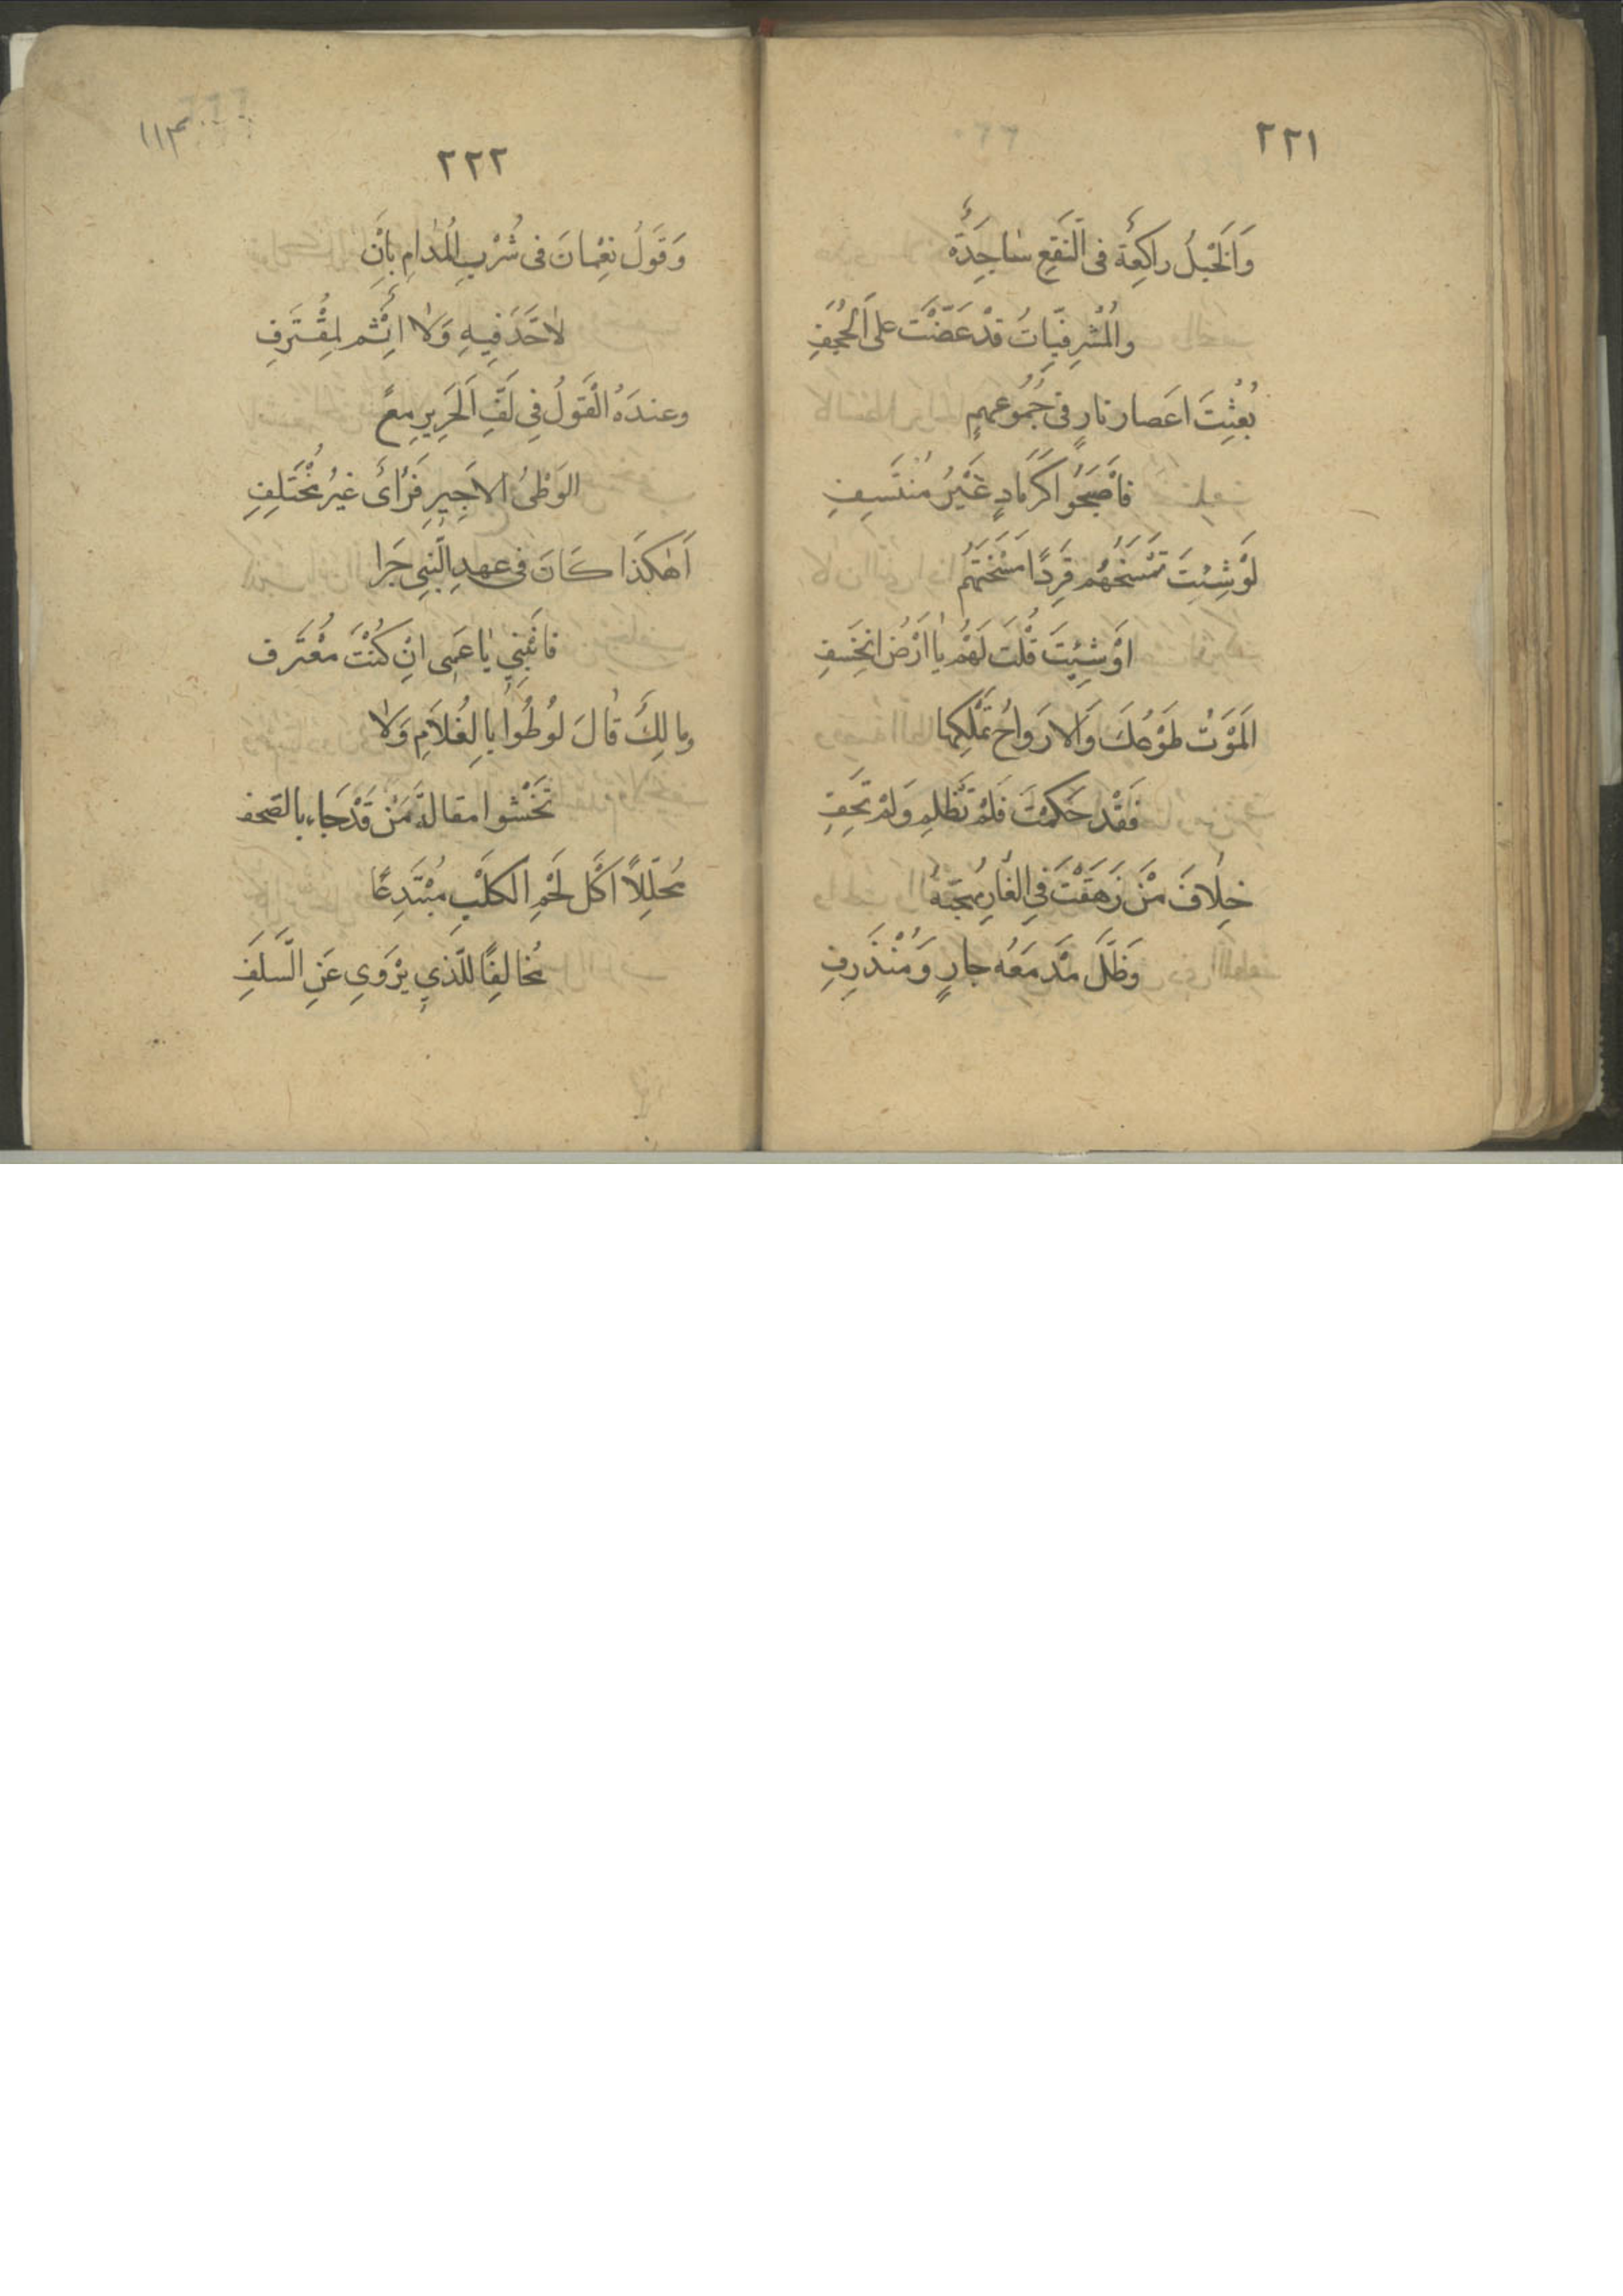 ٢٢١
وَاَلْخَيْلُ راكِعَةٌ فى النَّقْعِ سٰاجِدَةٌ
والْمُشْرِفيّاتُ قدْ عَضَّتْ على اَلْحُجَفِ
بُعِثْتَ اعَصار نارٍ فى جُمُوعِهمِ
فاَصْبَحُوا كَرَمادٍ غَيْرُ مُنْتَسِفِ
لَوْ شِئتَ تَمْسَخُهُم قِرَدًا مَسَخْتَهُمُ
اَوْ شِئتَ قُلْتَ لَهُم يٰا اَرْضُ انْخَسِفِ
اَلمَوْتُ طَوْعُكَ وَاَلارَواحُ تَمْلِكُها
فَقَدْ حَكَمْتَ فَلَمْ تَظْلِمِ وَلَمْ تَحِفِ
خِلٰافَ مَنْ زَهَقَتْ فِى الغٰارِ مُهجَتهُ
وَظَلَّ مَدْمَعُه جارٍ وَمُنْذَرِفِ
١١٣
٢٢٢
وَقَوَلُ نِعْمانَ فى شُرْبِ المُدامِ بِاَنْ
لاحَدَّ فيهِ وَلا اِثْم لِمقْتَرَفِ
وعندَهُ الْقَولُ فِى لَفِّ اَلحَرِيرِ مِعً
الوَطْىُ الاَجِيرِ فَرَاىٌ غيرُ مُخْتَلِفِ
اَهٰكَذَا كَانَ فى عهدِ النَّبِى جَرَا
فانْبِئنِى يٰا عَمِى انْ كُنْتَ مُعْتَرف
ومالِكٌ قٰالَ لوُطُوا بِالغُلاَمِ وَلٰا
تَخْشوا مقالةَ مَنْ قَدْ جَاء بالصّحف
مُحَلِّلاً اَكْل لَحْمِ الكَلْبِ مُبْتَدِعًا
مُخالِفًا للّذىِ يَرْوَىِ عَنِ السَّلَفِ